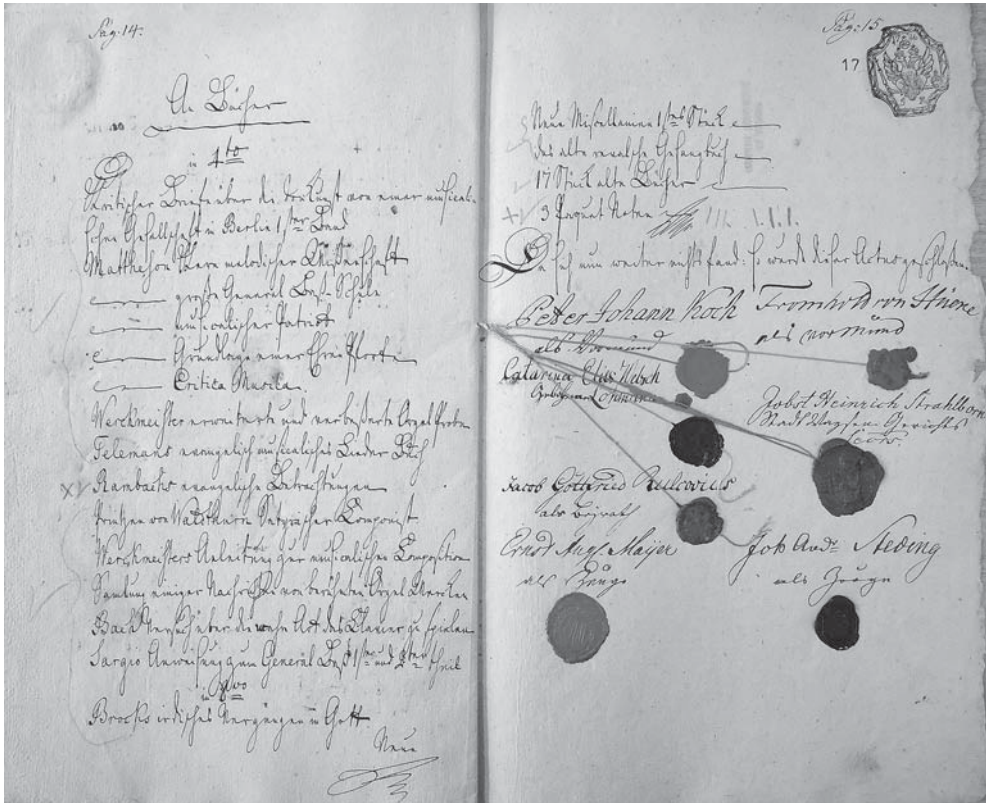 Pag: 14:
An Bücher
in 4to
Kritischer Briefe über die Tonkunst von einer musicali-
schen Gesellschaft in Berlin 1ster Band
Matthesson Kern melodischer Wissenschaft
grosse General Bass-Schule
musicalischer Patriot
Grundlage einer Ehren Pforte
Critica Musica.
Werckmeister erweiterte und verbesserte Orgel Probe
Telemans evangelisch musicalisches Lieder Buch
Rambachs evangelische Betrachtungen
Printzen von Waldthurn Satyrischer Componist
Werckmeisters Anleitung zur musicalischen Composition
Samlung einiger Nachrichten von berühmten Orgel Wercken
Bach Versuch über die wahre Art das Clavier zu spielen
Sorgio Anweisung zum General Bass 1ster und 2ter Theil
in 8vo
Brocks irdisches Vergnügen in Gott
Neue
Pag: 15.
17
Neue Miscellanien 1stes Stück
das alte revalsche Gesangbuch
17 Stück alte Bücher
3 Paquet Noten
Da sich nun weiter nichts fand: so wurde dieser Actus geschlossen.
Peter Johann Koch
als Vormund
Fromhold von Huene
als vormünd
Catarina Elis
Gebohrne
Jobst Heinrich Strahlborn
Stadt Waysen-Gerichts
Secrs.
Jacob Gottfried
als Beyrath
Ernst Augs. Maijer
als Zeuge
Joh Andr. Steding
als Zeuge